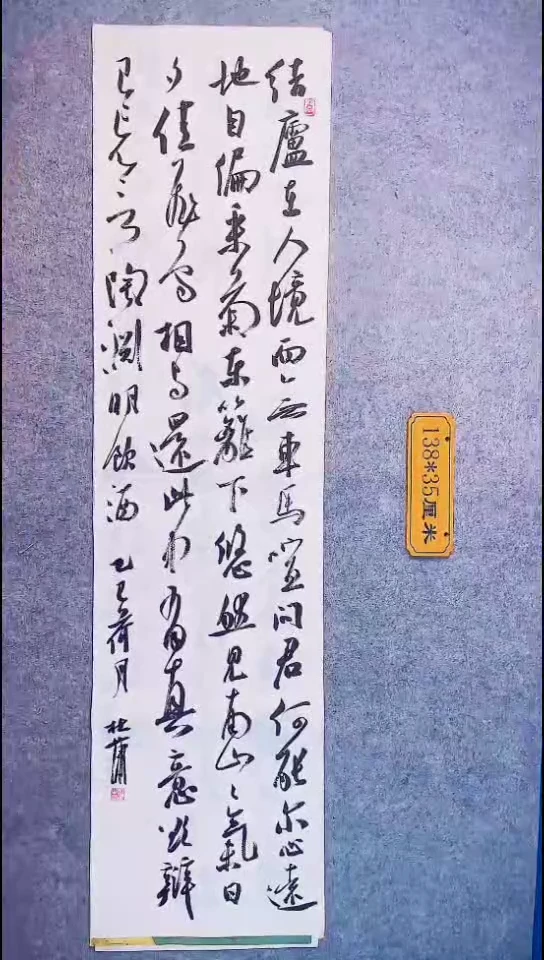 結廬在人境而無車馬喧問君何能尔心遠
地自偏采菊東籬下悠然見南山々氣日
夕佳飛鳥相与還此中有真意欲辯
已忘言 陶淵明飲酒 乙巳荷月
138*35厘米